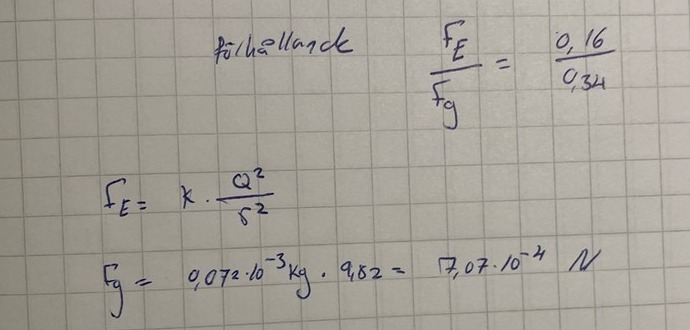 förhållande F_E/F_g = 0,16/0,34
F_E = k · Q²/r²
F_g = 0,072·10⁻³kg · 9,82 = 7,07·10⁻⁴ N